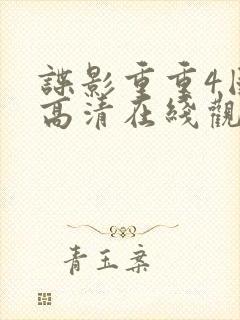 諜影重重4
高清在綫觀
青玉案